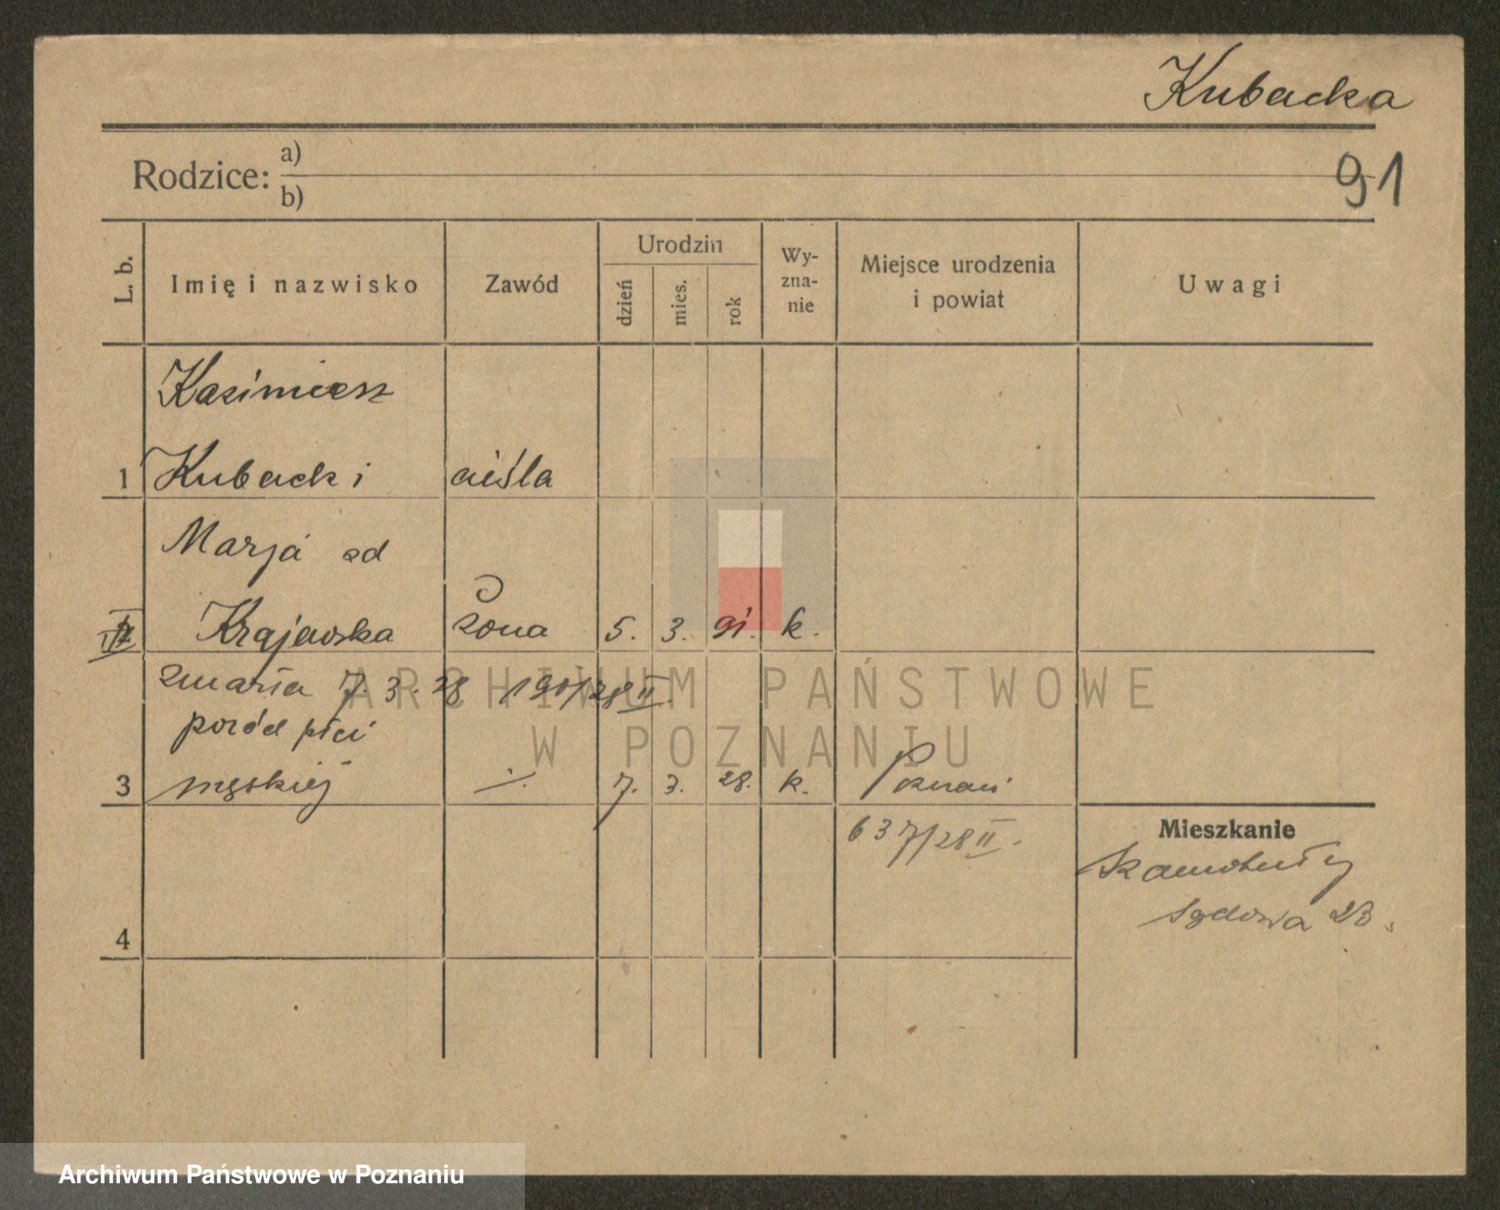 Kubacka
91
Rodzice: a)
b)
L. b. Imię i nazwisko Zawód Urodzin dzień mies. rok Wy-zna-nie Miejsce urodzenia i powiat Uwagi
Kazimierz
1 Kubacki cieśla
Marja od
Krajewska żona 5. 3. 91. k.
zmarła 7. 3. 28 190/28 II.
poród płci
3 męskiej ·/. 7. 3. 28. k. Poznań
637/28 II.
Mieszkanie
Szamotuły
Sądowa 23.
4
ARCHIWUM PAŃSTWOWE
W POZNANIU
Archiwum Państwowe w Poznaniu